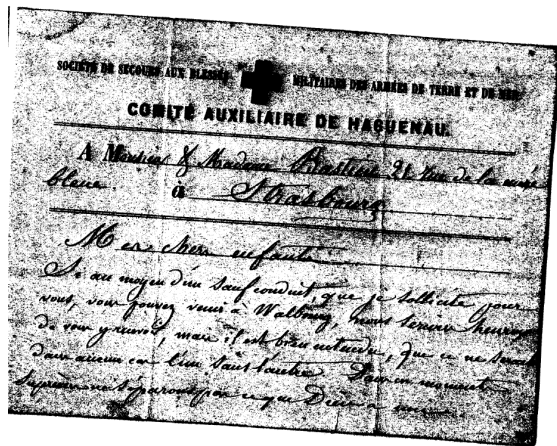 SOCIÉTÉ DE SECOURS AUX BLESSÉS MILITAIRES DES ARMÉES DE TERRE ET DE MER
COMITÉ AUXILIAIRE DE HAGUENAU.
A Monsieur & Madame 21 Rue de la
bleue à Strasbourg
Mes chers enfants
Si au moyen d'un sauf conduit, que je sollicite pour
vous, vous pouvez venir à Walbourg, nous serions heureux
de vous y revoir, mais il est bien entendu, que ce ne serait
dans aucun cas l'un sans l'autre. Dans ce moment
suprême ne séparons pas ce que Dieu a uni